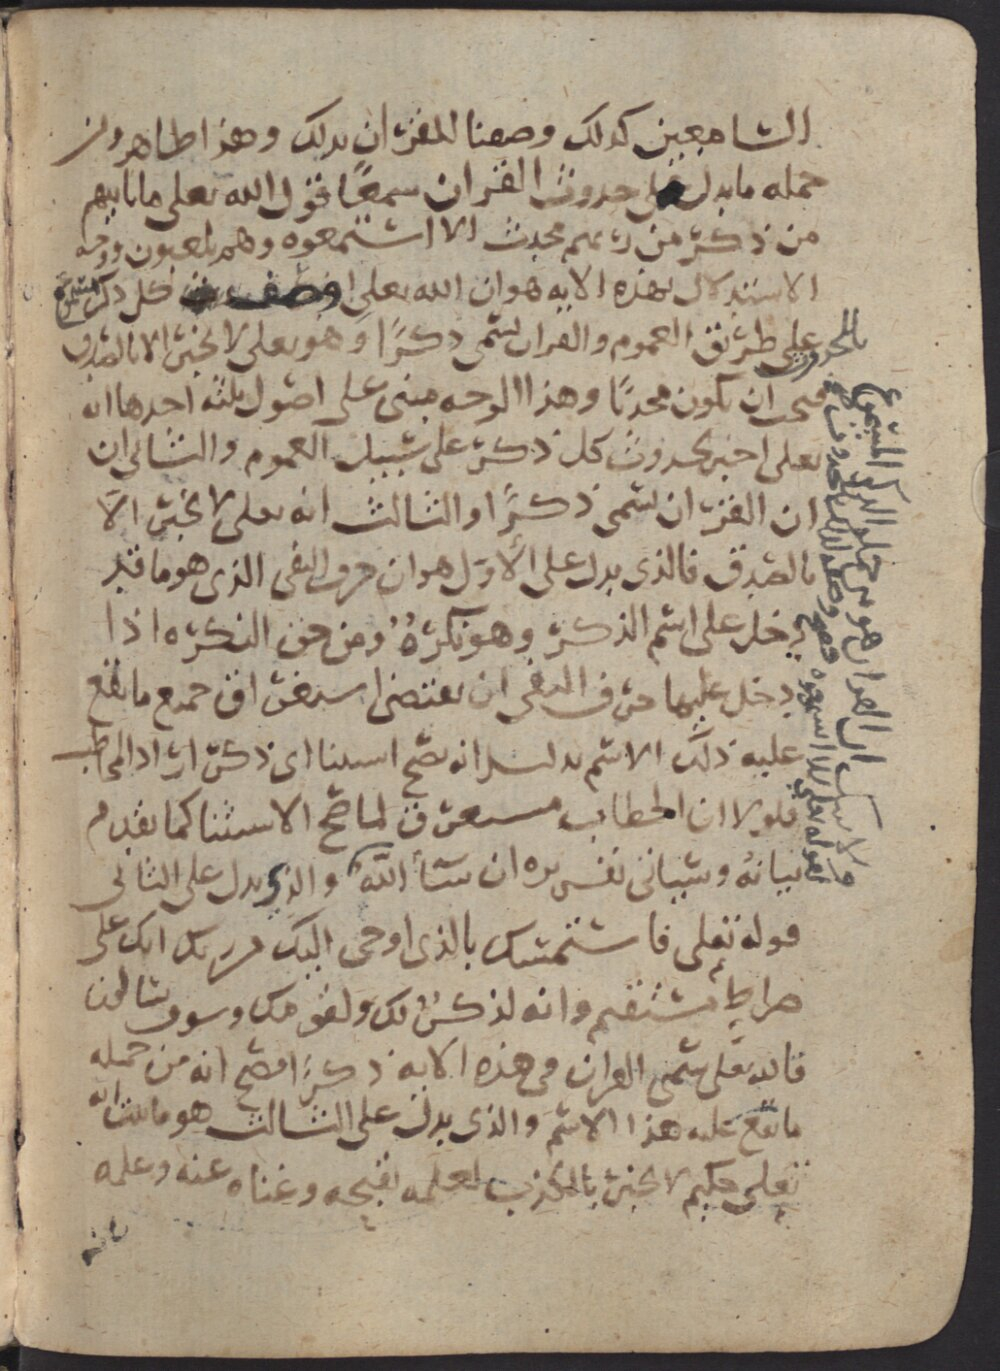 السامعين كذلك وصفنا القران بذلك وهذا ظاهر ومن
جمله ما يدل على حدوث القران سمعًا قول الله تعلى ما ياتيهم
من ذكر من ربهم محدث الا استمعوه وهم يلعبون ووجه
الاستدلال بهذه الايه هو ان الله تعلى وصف كل ذكر
بالحدوث على طريق العموم والقران يسمى ذكرًا وهو تعلى لا يخبر الا بالصدق
فيجب ان يكون محدثًا وهذا الوجه مبني على اصول ثلثه احدها انه
تعلى اخبر بحدوث كل ذكر على سبيل العموم والثاني ان
ان القران يسمى ذكرًا والثالث انه تعلى لا يخبر الا
بالصدق فالذي يدل على الاول هو ان حرف النفي الذي هو ما قد
دخل على اسم الذكر وهو نكرةٌ ومن حق النكره اذا
دخل عليها حرف النفي ان يقتضي استغراق جميع ما يقع
عليه ذلك الاسم بدليل انه يصح استثنا اي ذكر اراد المخاطب
فلولا ان الخطاب مستغرق لما صح الاستثنا كما تقدم
بيانه وسياتي تفسيره ان شأ الله والذي يدل على الثاني
قوله تعلى فاستمسك بالذي اوحي اليك انك على
صراط مستقيم وانه لذكرٌ لك ولقومك وسوف تسالون
فالله تعلى سمى القران في هذه الايه ذكرًا فصح انه من جمله
ما يقع عليه هذا الاسم والذي يدل على الثالث هو ما ثبت انه
تعلى حكيم لا يخبر بالكذب لعلمه بقبحه وغناه عنه وعلمه